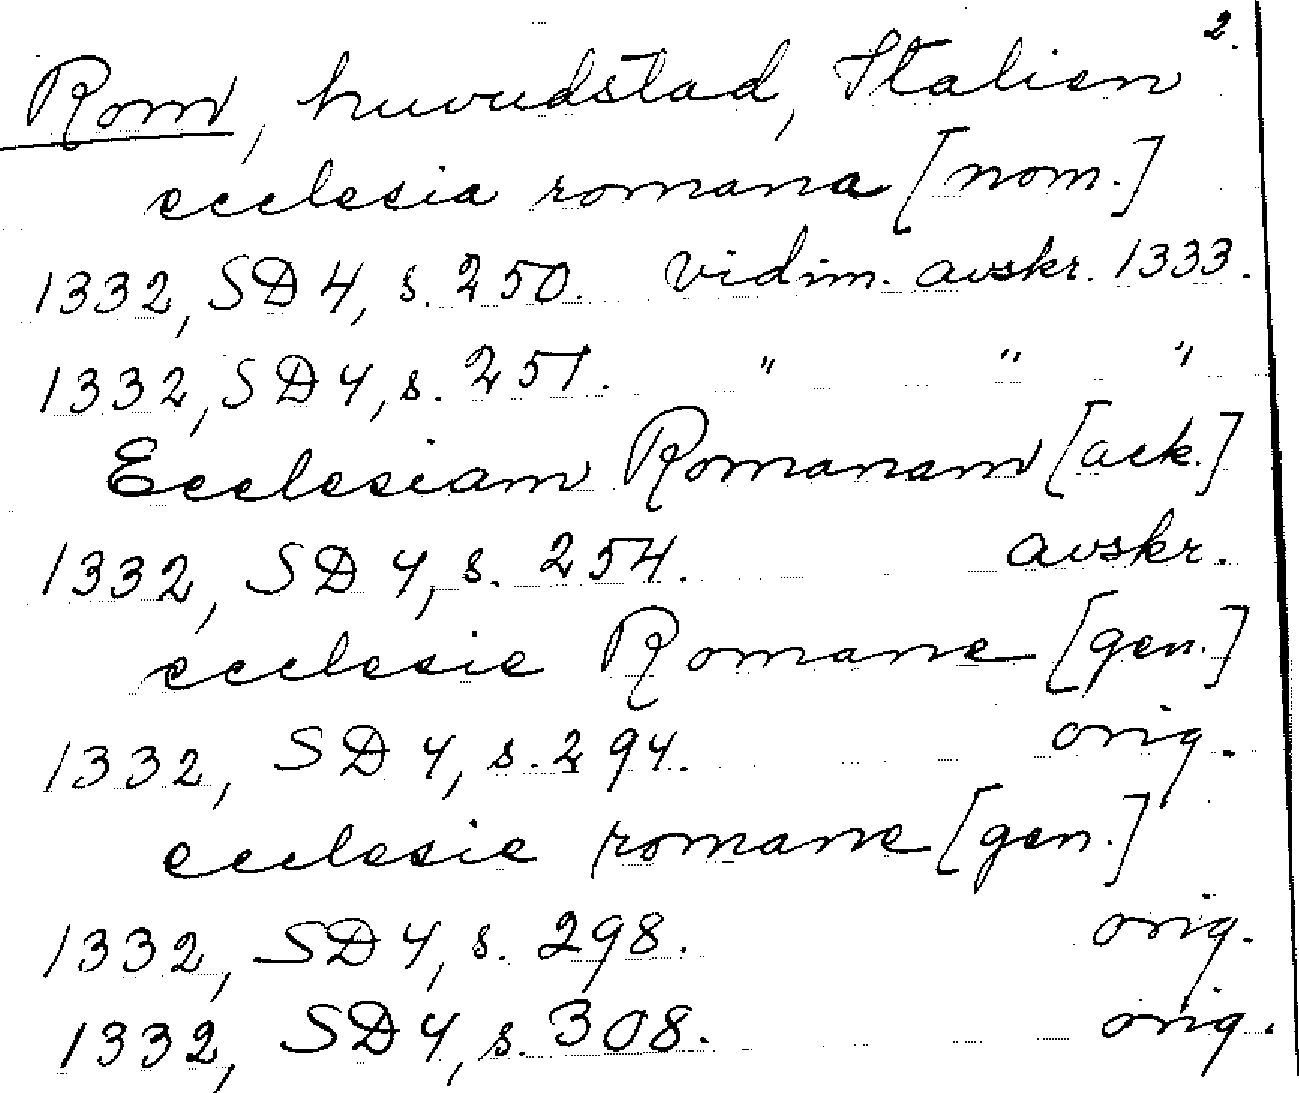 2.
Rom, huvudstad, Italien
ecclesia romana [nom.]
1332, SD 4, s. 250. vidim. avskr. 1333.
1332, SD 4, s. 251. " " "
Ecclesiam Romanam [ack.]
1332, SD 4, s. 254. avskr.
ecclesie Romane [gen.]
1332, SD 4, s. 294. orig.
ecclesie romane [gen.]
1332, SD 4, s. 298. orig.
1332, SD 4, s. 308. orig.